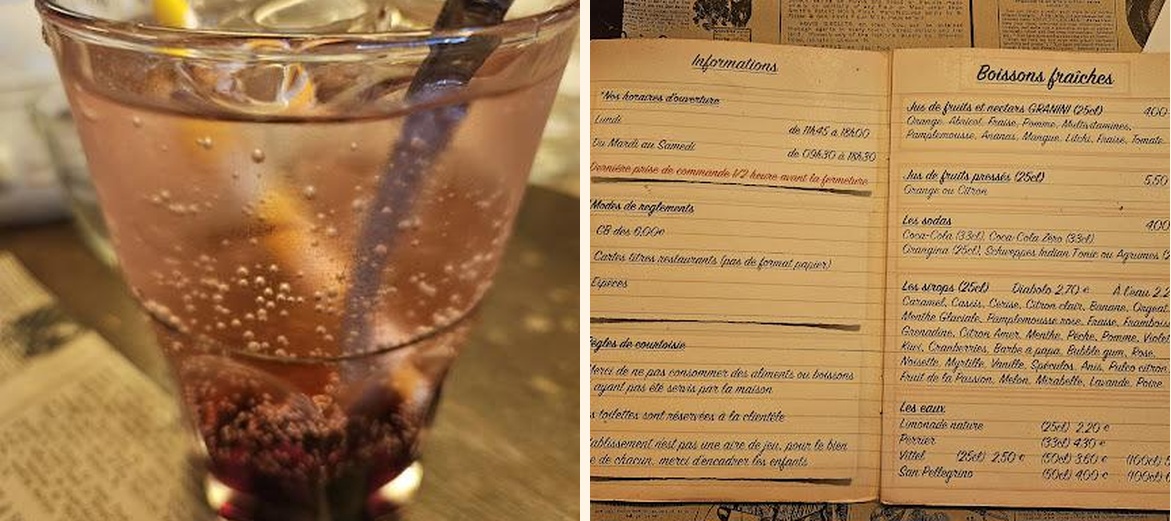 Informations
"Nos horaires d'ouverture
Lundi
de 11h45 à 18h00
Du Mardi au Samedi
de 09h30 à 18h30
Dernière prise de commande 1/2 heure avant la fermeture
Modes de reglements
CB dès 6,00€
Cartes titres restaurants (pas de format papier)
Espèces
ègles de courtoisie
Merci de ne pas consommer des aliments ou boissons
ayant pas été servis par la maison
s toilettes sont réservées à la clientèle
tablissement n'est pas une aire de jeu, pour le bien
e de chacun, merci d'encadrer les enfants
Boissons fraîches
Jus de fruits et nectars GRANINI (25cl) 4,00
Orange, Abricot, Fraise, Pomme, Multivitamines,
Pamplemousse, Ananas, Mangue, Litchi, Fraise, Tomate
Jus de fruits pressés (25cl) 5,50
Orange ou Citron
Les sodas 4,00
Coca-Cola (33cl), Coca-Cola Zéro (33cl)
Orangina (25cl), Schweppes Indian Tonic ou Agrumes (2
Les sirops (25cl) Diabolo 2,70 € A l'eau 2,2
Caramel, Cassis, Cerise, Citron clair, Banane, Orgeat
Menthe Glaciale, Pamplemousse rose, Fraise, Frambois
Grenadine, Citron Amer, Menthe, Pêche, Pomme, Violet
Kiwi, Cranberries, Barbe à papa, Bubble gum, Rose,
Noisette, Myrtille, Vanille, Spéculos, Anis, Pulco citron,
Fruit de la Passion, Melon, Mirabelle, Lavande, Poire
Les eaux
Limonade nature (25cl) 2,20 €
Perrier (33cl) 4,30 €
Vittel (25cl) 2,50 € (50cl) 3,60 € (100cl) 5
San Pellegrino (50cl) 4,00 € (100cl) 6